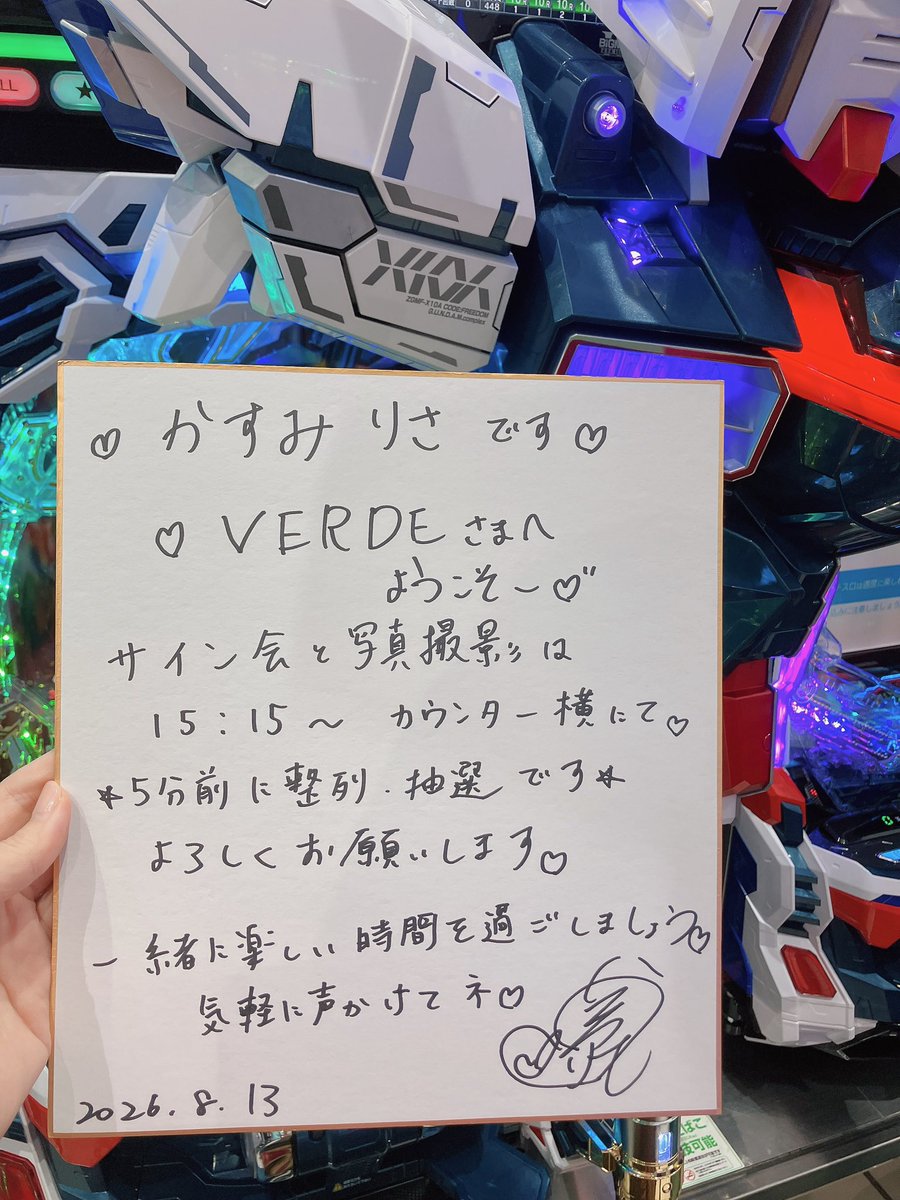 448
10R 10R 10R 10R
1 1 2 1
BIG
LL
★
XIVA
ZGMF-X10A CODE:FREEDOM
G.U.N.D.A.M.complex
♡ かすみ りさ です ♡
♡ VERDE さまへ
ようこそ～♡"
サイン会と写真撮影は
15:15～ カウンター横にて♡
*5分前に整列.抽選です*
よろしくお願いします♡
一緒に楽しい時間を過ごしましょう♡
気軽に声かけてネ♡
2026.8.13
0